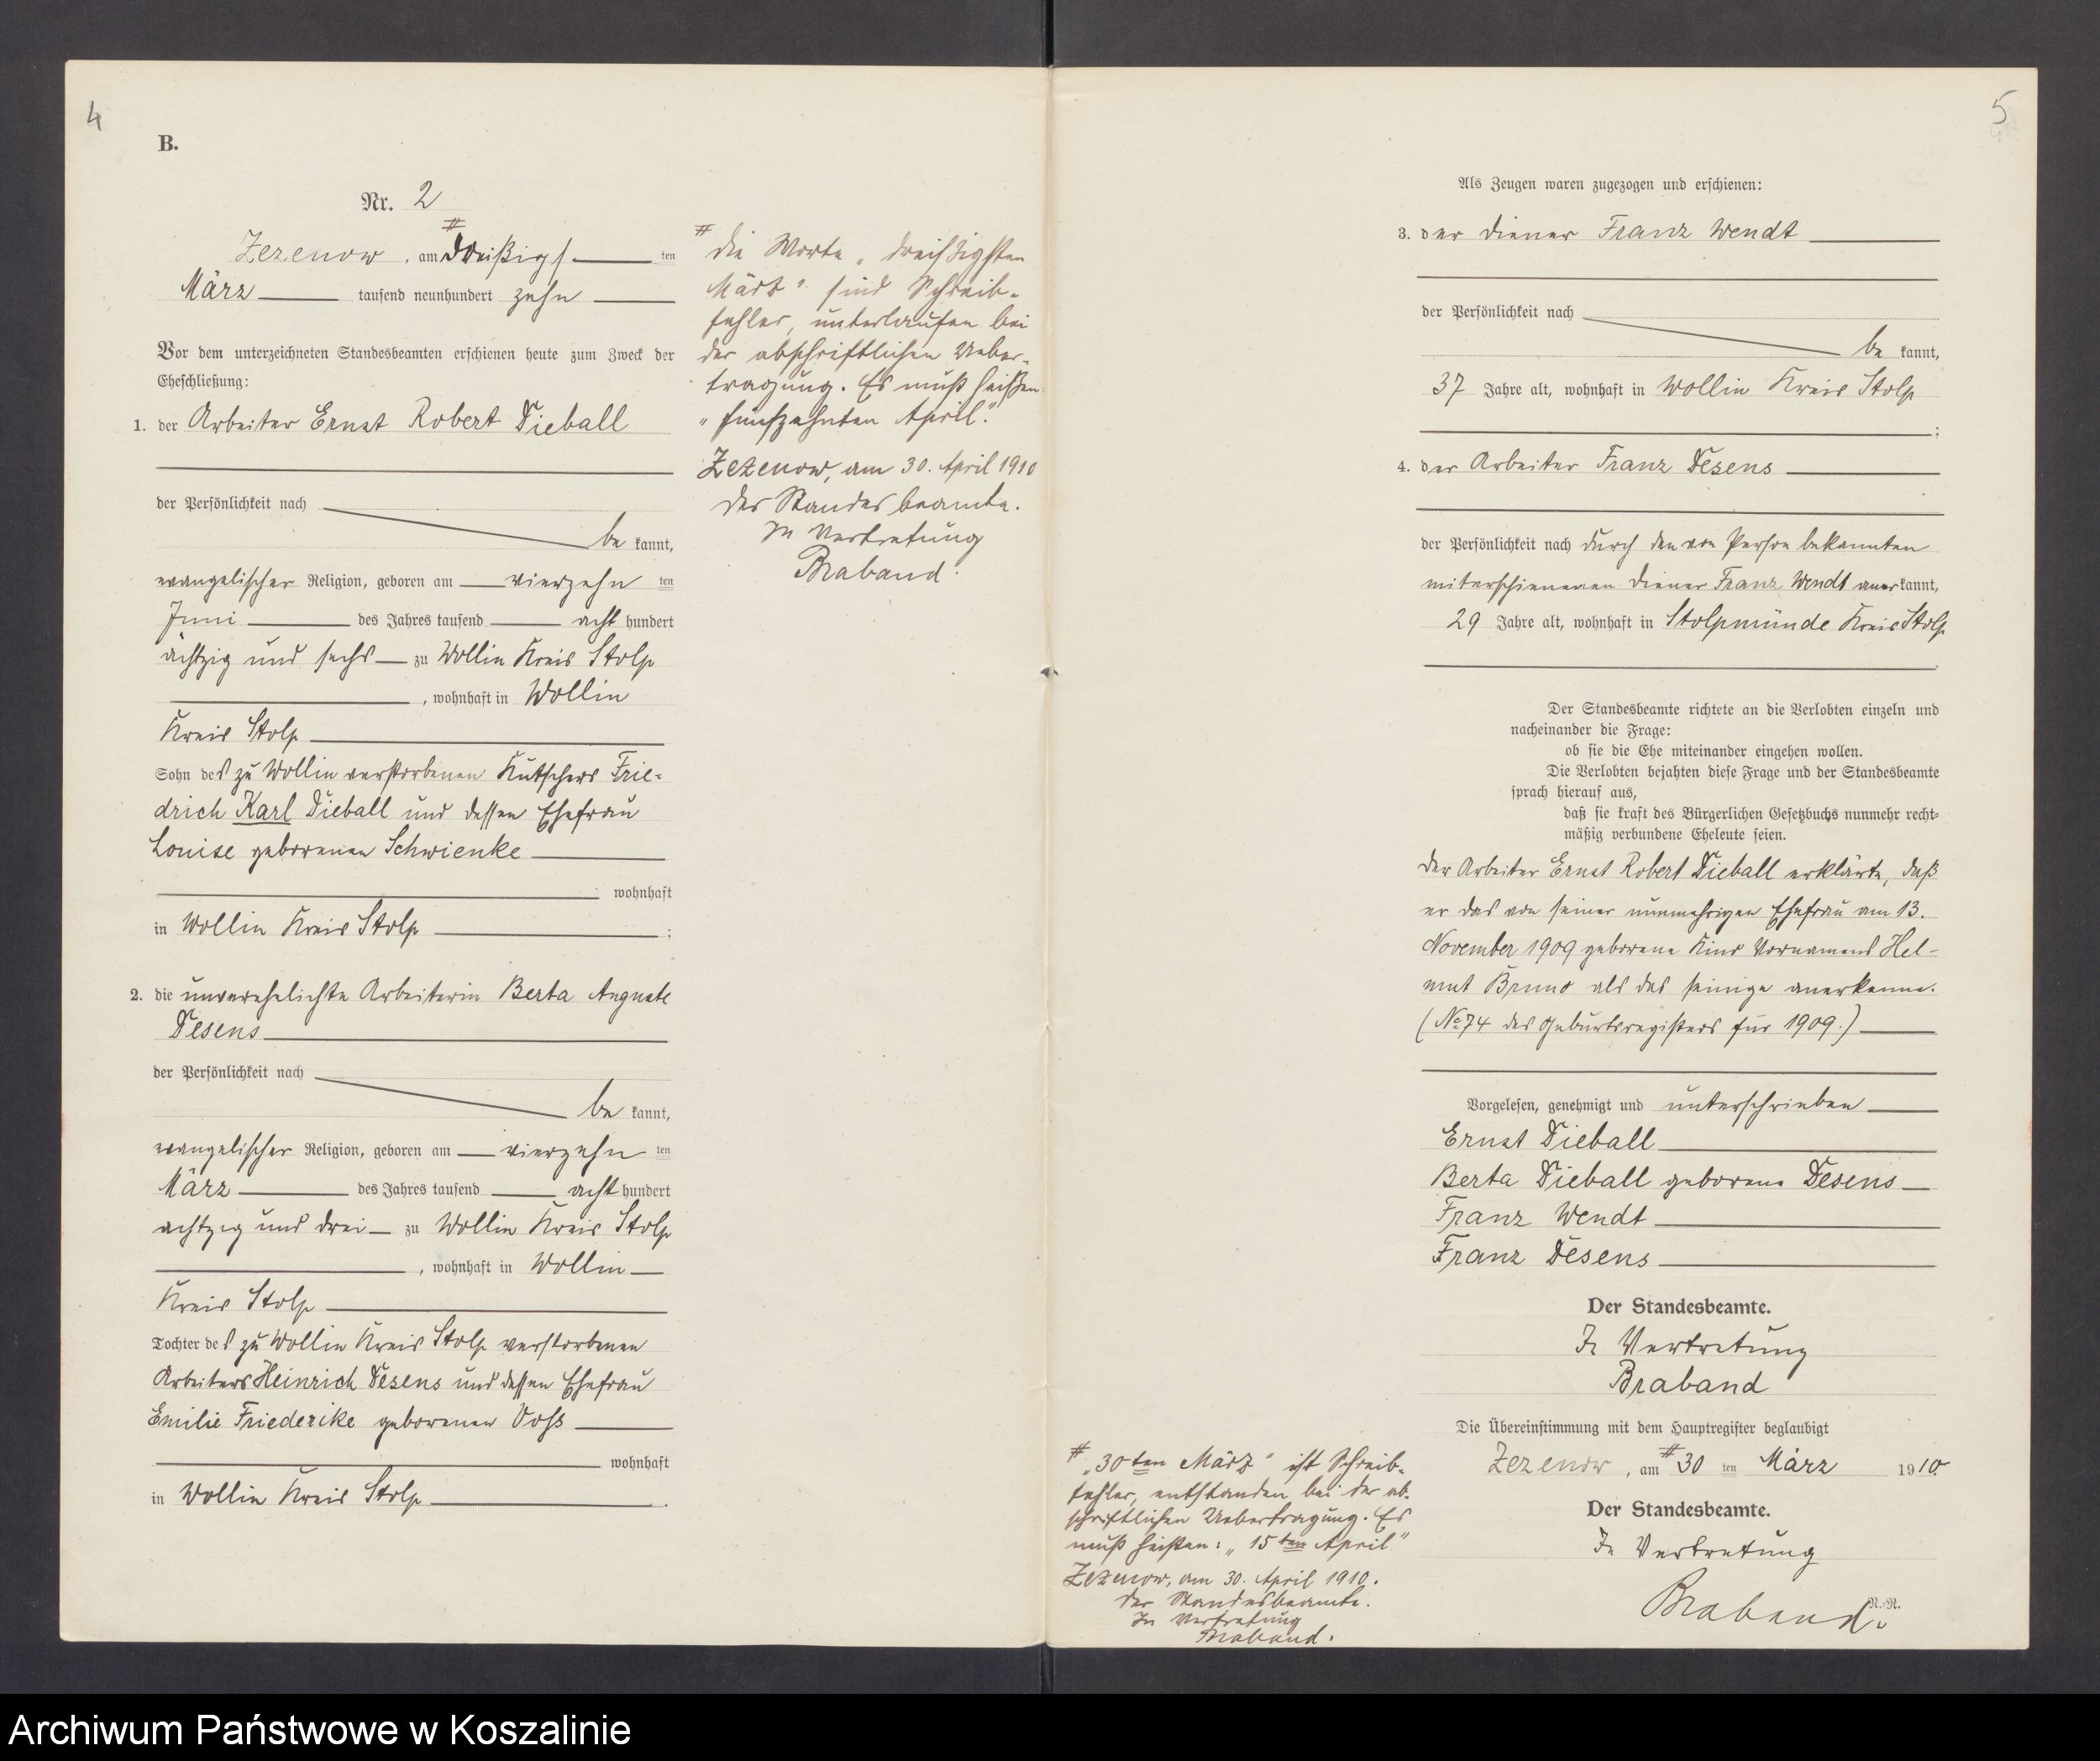 4
B.
Nr. 2
#
Zezenow, am dreißigs ten
März tausend neunhundert zehn
Vor dem unterzeichneten Standesbeamten erschienen heute zum Zweck der
Eheschließung:
1. der Arbeiter Ernst Robert Dieball
der Persönlichkeit nach
be kannt,
evangelischer Religion, geboren am vierzehn ten
Juni des Jahres tausend acht hundert
achtzig und sechs zu Wollin Kreis Stolp
, wohnhaft in Wollin
Kreis Stolp
Sohn des zu Wollin verstorbenen Kutschers Frie-
drich Karl Dieball und dessen Ehefrau
Louise geborenen Schwienke
wohnhaft
in Wollin Kreis Stolp ;
2. die unverehelichte Arbeiterin Berta Auguste
Desens
der Persönlichkeit nach
be kannt,
evangelischer Religion, geboren am vierzehn ten
März des Jahres tausend acht hundert
achtzig und drei zu Wollin Kreis Stolp
, wohnhaft in Wollin
Kreis Stolp
Tochter des zu Wollin Kreis Stolp verstorbenen
Arbeiters Heinrich Desens und dessen Ehefrau
Emilie Friederike geborenen Voß
wohnhaft
in Wollin Kreis Stolp .
# Die Worte „dreißigsten
März" sind Schreib-
fehler, unterlaufen bei
der abschriftlichen Ueber-
tragung. Es muß heißen
„fünfzehnten April".
Zezenow, am 30. April 1910
Der Standesbeamte.
In Vertretung
Braband.
5
Als Zeugen waren zugezogen und erschienen:
3. der Diener Franz Wendt
der Persönlichkeit nach
be kannt,
37 Jahre alt, wohnhaft in Wollin Kreis Stolp
;
4. der Arbeiter Franz Desens
der Persönlichkeit nach durch den von Person bekannten
miterschienenen Diener Franz Wendt aner kannt,
29 Jahre alt, wohnhaft in Stolpmünde Kreis Stolp
.
Der Standesbeamte richtete an die Verlobten einzeln und
nacheinander die Frage:
ob sie die Ehe miteinander eingehen wollen.
Die Verlobten bejahten diese Frage und der Standesbeamte
sprach hierauf aus,
daß sie kraft des Bürgerlichen Gesetzbuchs nunmehr recht-
mäßig verbundene Eheleute seien.
Der Arbeiter Ernst Robert Dieball erklärte, daß
er das von seiner nunmehrigen Ehefrau am 13.
November 1909 geborene Kind Vornamens Hel-
mut Bruno als das seinige anerkenne.
(No 74 des Geburtsregisters für 1909.)
Vorgelesen, genehmigt und unterschrieben
Ernst Dieball
Berta Dieball geborene Desens
Franz Wendt
Franz Desens
Der Standesbeamte.
In Vertretung
Braband
Die Übereinstimmung mit dem Hauptregister beglaubigt
Zezenow, am # 30 ten März 1910.
Der Standesbeamte.
In Vertretung
Braband.
# „30ten März" ist Schreib-
fehler, entstanden bei der ab-
schriftlichen Uebertragung. Es
muß heißen: „15ten April"
Zezenow, am 30. April 1910.
Der Standesbeamte.
In Vertretung
Braband.
Archiwum Państwowe w Koszalinie